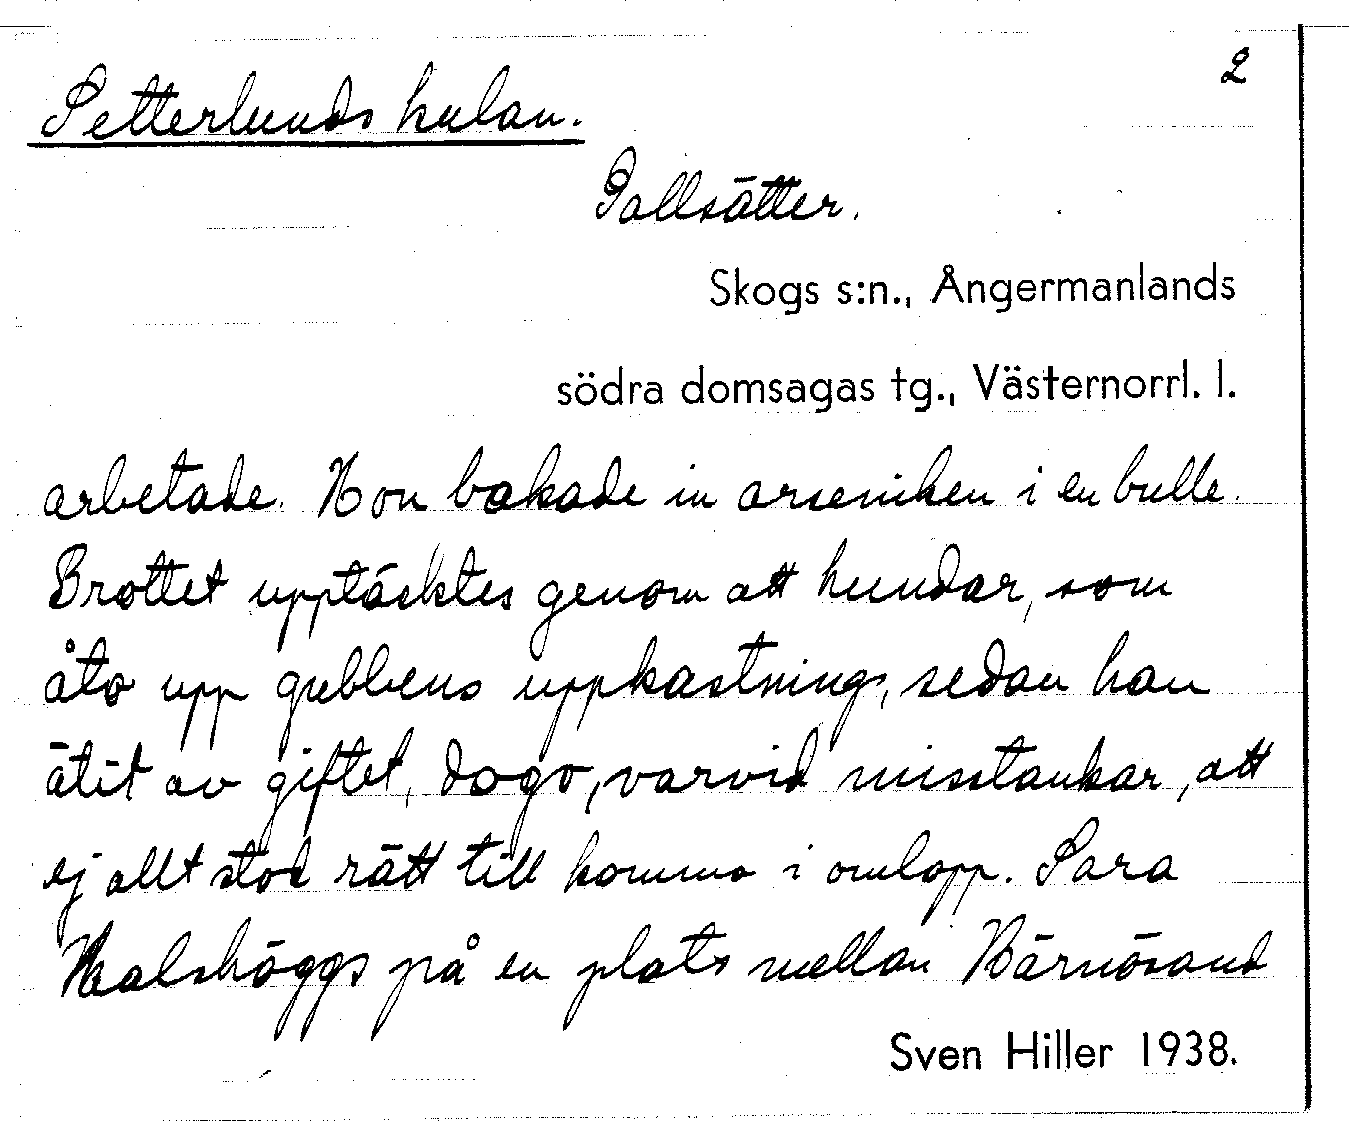 2
Setterlunds kulan.
Pallsätter.
Skogs s:n., Ångermanlands
södra domsagas tg., Västernorrl. l.
arbetade. Hon bakade in arseniken i en bulle.
Brottet upptäcktes genom att hundar, som
åto upp gubbens uppkastning, sedan han
ätit av giftet, dogo, varvid misstankar, att
ej allt stod rätt till komma i omlopp. Sara
Halshöggs på en plats mellan Härnösand
Sven Hiller 1938.